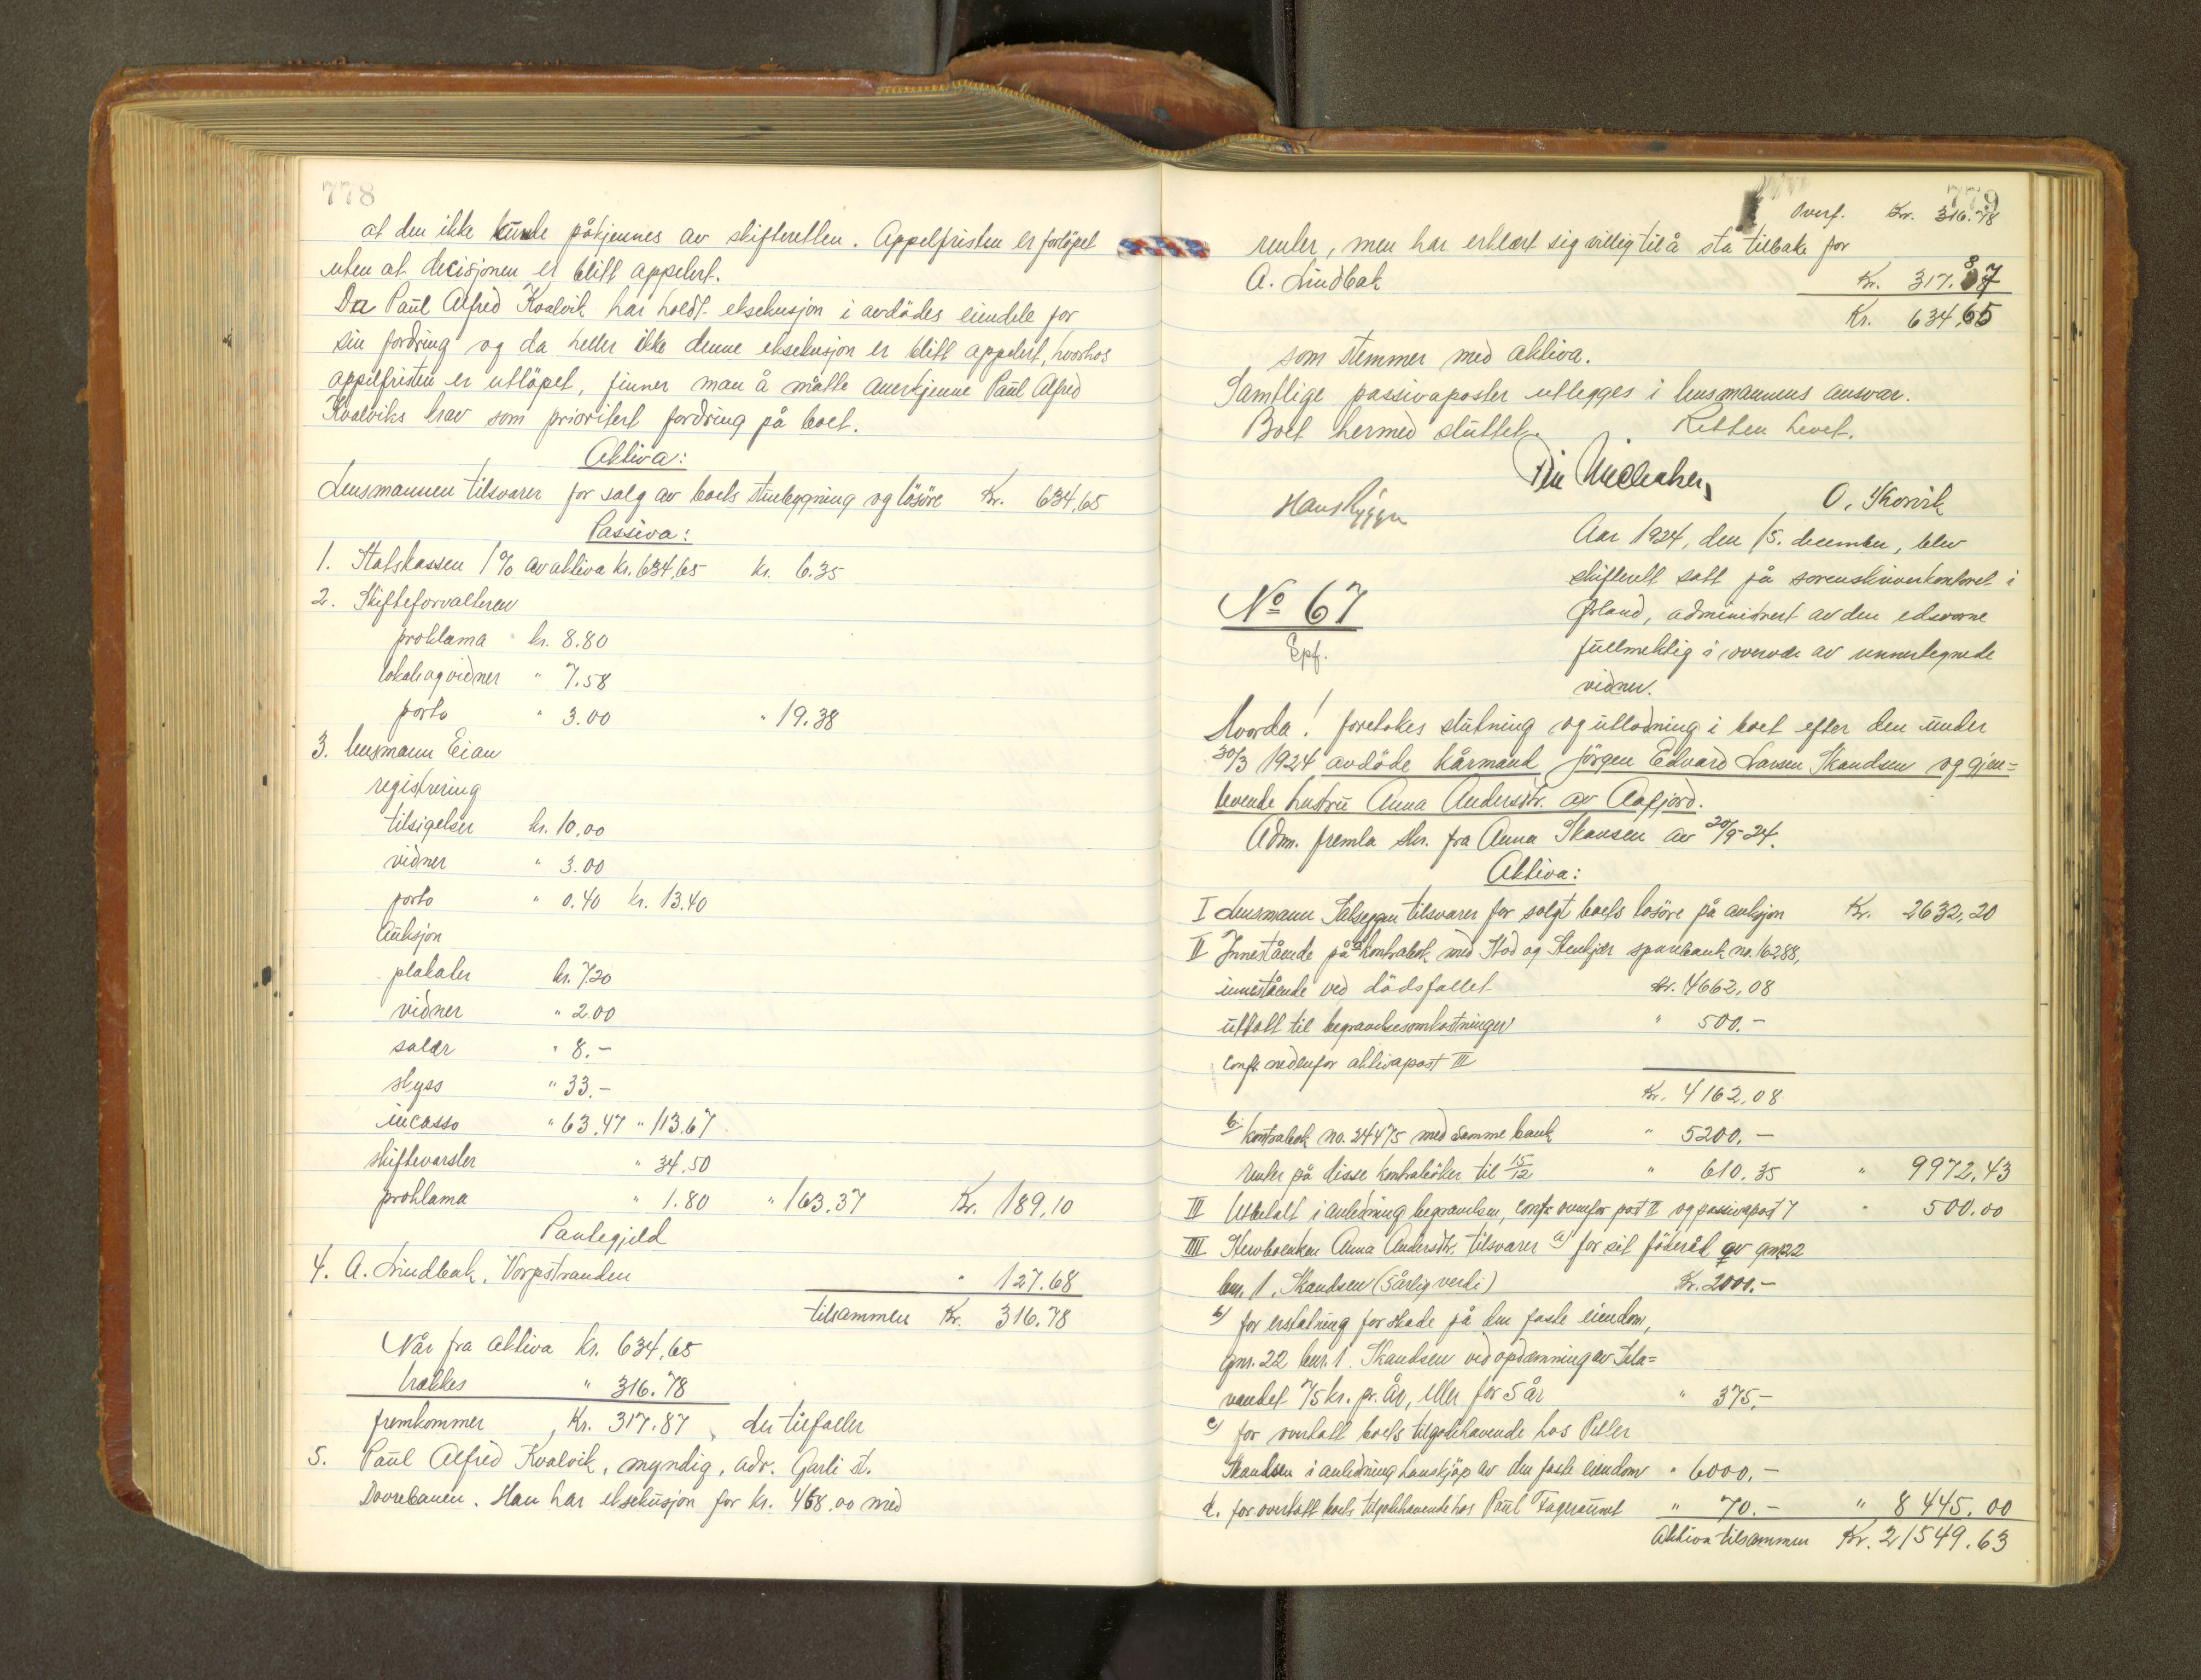 778
at den ikke kunde påkjennes av skifteretten. Appelfristen er forløpet
uten at decisjonen er blitt appelert.
Da Paul Alfred Kvalvik har holdt eksekusjon i avdødes eiendele for
sin fordring og da heller ikke denne eksekusjon er blitt appelert, hvorhos
appelfristen er utløpet, finner man å måtte anerkjenne Paul Alfred
Kvalviks krav som prioritert fordring på boet.
Aktiva:
Lensmannen tilsvarer for salg av boets stuebygning og løsøre Kr. 634,65
Passiva:
1. Statskassen 1% av aktiva kr. 634,65 kr. 6.35
2. Skifteforvalteren
proklama kr. 8.80
lokale og vidner " 7.58
porto " 3.00 " 19.38
3. lensmann Eian
registrering
tilsigelser kr. 10.00
vidner " 3.00
porto " 0.40 kr. 13.40
Auksjon
plakater kr. 7.20
vidner " 2.00
salær " 8.-
skyss " 33.-
incasso " 63.47 " 113.67
skiftevarsler " 34.50
proklama " 1.80 " 163.37 Kr. 189,10
Pantegjeld
4. A. Lindbak, Vorpstranden " 127.68
tilsammen Kr. 316.78
Når fra aktiva kr. 634,65
trækkes " 316.78
fremkommer Kr. 317.87, der tilfaller
5. Paul Alfred Kvalvik, myndig, adr. Garli st.
Dovrebanen. Han har eksekusjon for kr. 468.00 med
779
Overf. Kr. 316.78
renter, men har erklært sig villig til å stå tilbake for
A. Lindbak Kr. 317.87
Kr. 634,65
som stemmer med aktiva.
Samtlige passivaposter utlegges i lensmannens ansvar.
Boet hermed sluttet. Retten hevet.
O. Skorvik
Hans Rygge
Aar 1924, den 15. december, blev
skifterett satt på sorenskriverkontoret i
Ørland, administrert av den edsvorne
fullmektig i overvær av unnertegnede
vidner.
No 67
Epf.
Hvorda! foretokes slutning og utlodning i boet efter den under
30/3 1924 avdøde kårmand Jørgen Edvard Larsen Skandsen og gjen=
levende hustru Anna Andersdtr. av Aafjord.
Adm. fremla skr. fra Anna Skansen av 20/9-24.
Aktiva:
I Lensmann Selseggen tilsvarer for solgt boets løsøre på auksjon Kr. 2632,20
II Innestående på a kontrabok med Stod og Stenkjær sparebank no. 16288,
innestående ved dødsfallet Kr. 4662,08
uttatt til begravelsesomkostninger " 500.-
confr. nedenfor aktivapost III
Kr. 4162,08
b. kontrabok no. 24475 med samme bank " 5200.-
renter på disse kontrabøker til 15/12 " 610.35 " 9972,43
III Utbetalt i anledning begravelsen, confr. ovenfor post II og passivapost 7 " 500.00
IIII Stervboenken Anna Andersdtr. tilsvarer a/ for sit føderåd av gnr. 22
bnr. 1, Skandsen (5 årlig verdi) Kr. 2000.-
b/ for erstatning for skade på den faste eiendom,
gnr. 22 bnr. 1. Skandsen ved opdemning av Sela=
vandet 75 kr. pr. år, eller for 5 år " 375.-
c/ for overtatt boets tilgodehavende hos Petter
Skandsen i anledning hans kjøp av den faste eiendom " 6000.-
d. for overtatt boets tilgodehavende hos Paul Fageraunet " 70.- " 8445.00
Aktiva tilsammen Kr. 21549.63